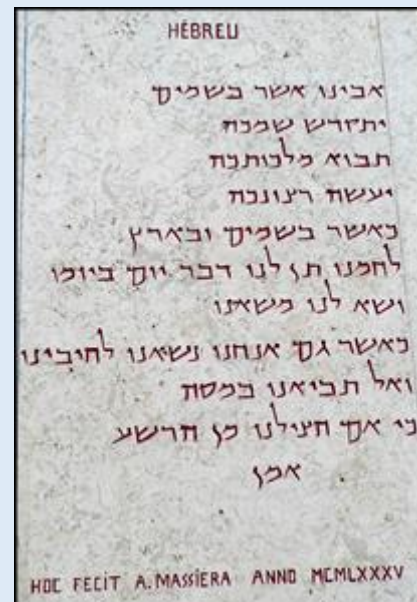 HÉBREU
אבינו אשר בשמים
יתקדש שמכה
תבוא מלכותכה
יעשה רצונכה
כאשר בשמים ובארץ
לחמנו תן לנו דבר יום ביומו
ושא לנו משאנו
כאשר גם אנחנו נשאנו לחובינו
ואל תביאנו במסה
כי אם הצילנו מן הרשע
אמן
HOC FECIT A. MASSIERA ANNO MCMLXXXV